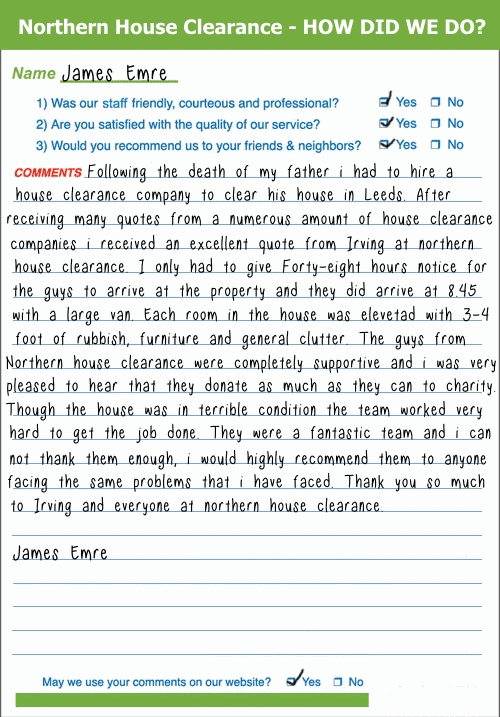 Northern House Clearance - HOW DID WE DO?
Name James Emre
1) Was our staff friendly, courteous and professional? Yes No
2) Are you satisfied with the quality of our service? Yes No
3) Would you recommend us to your friends & neighbors? Yes No
COMMENTS Following the death of my father i had to hire a
house clearance company to clear his house in Leeds. After
receiving many quotes from a numerous amount of house clearance
companies i received an excellent quote from Irving at northern
house clearance. I only had to give Forty-eight hours notice for
the guys to arrive at the property and they did arrive at 8.45
with a large van. Each room in the house was elevetad with 3-4
foot of rubbish, furniture and general clutter. The guys from
Northern house clearance were completely supportive and i was very
pleased to hear that they donate as much as they can to charity.
Though the house was in terrible condition the team worked very
hard to get the job done. They were a fantastic team and i can
not thank them enough, i would highly recommend them to anyone
facing the same problems that i have faced. Thank you so much
to Irving and everyone at northern house clearance.
James Emre
May we use your comments on our website? Yes No